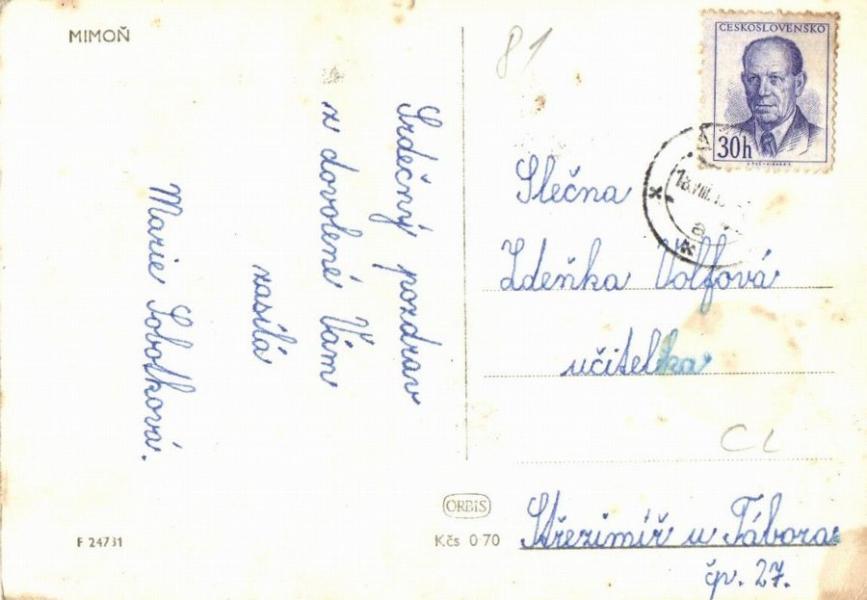 MIMOŇ
81
ČESKOSLOVENSKO
30h
Srdečný pozdrav
z dovolené Vám
zasílá
Marie Sobotková.
Slečna
Zdeňka Volfová
učitelka
CL
Střezimíř u Tábora
čp. 27.
ORBIS
Kčs 0·70
F 24731